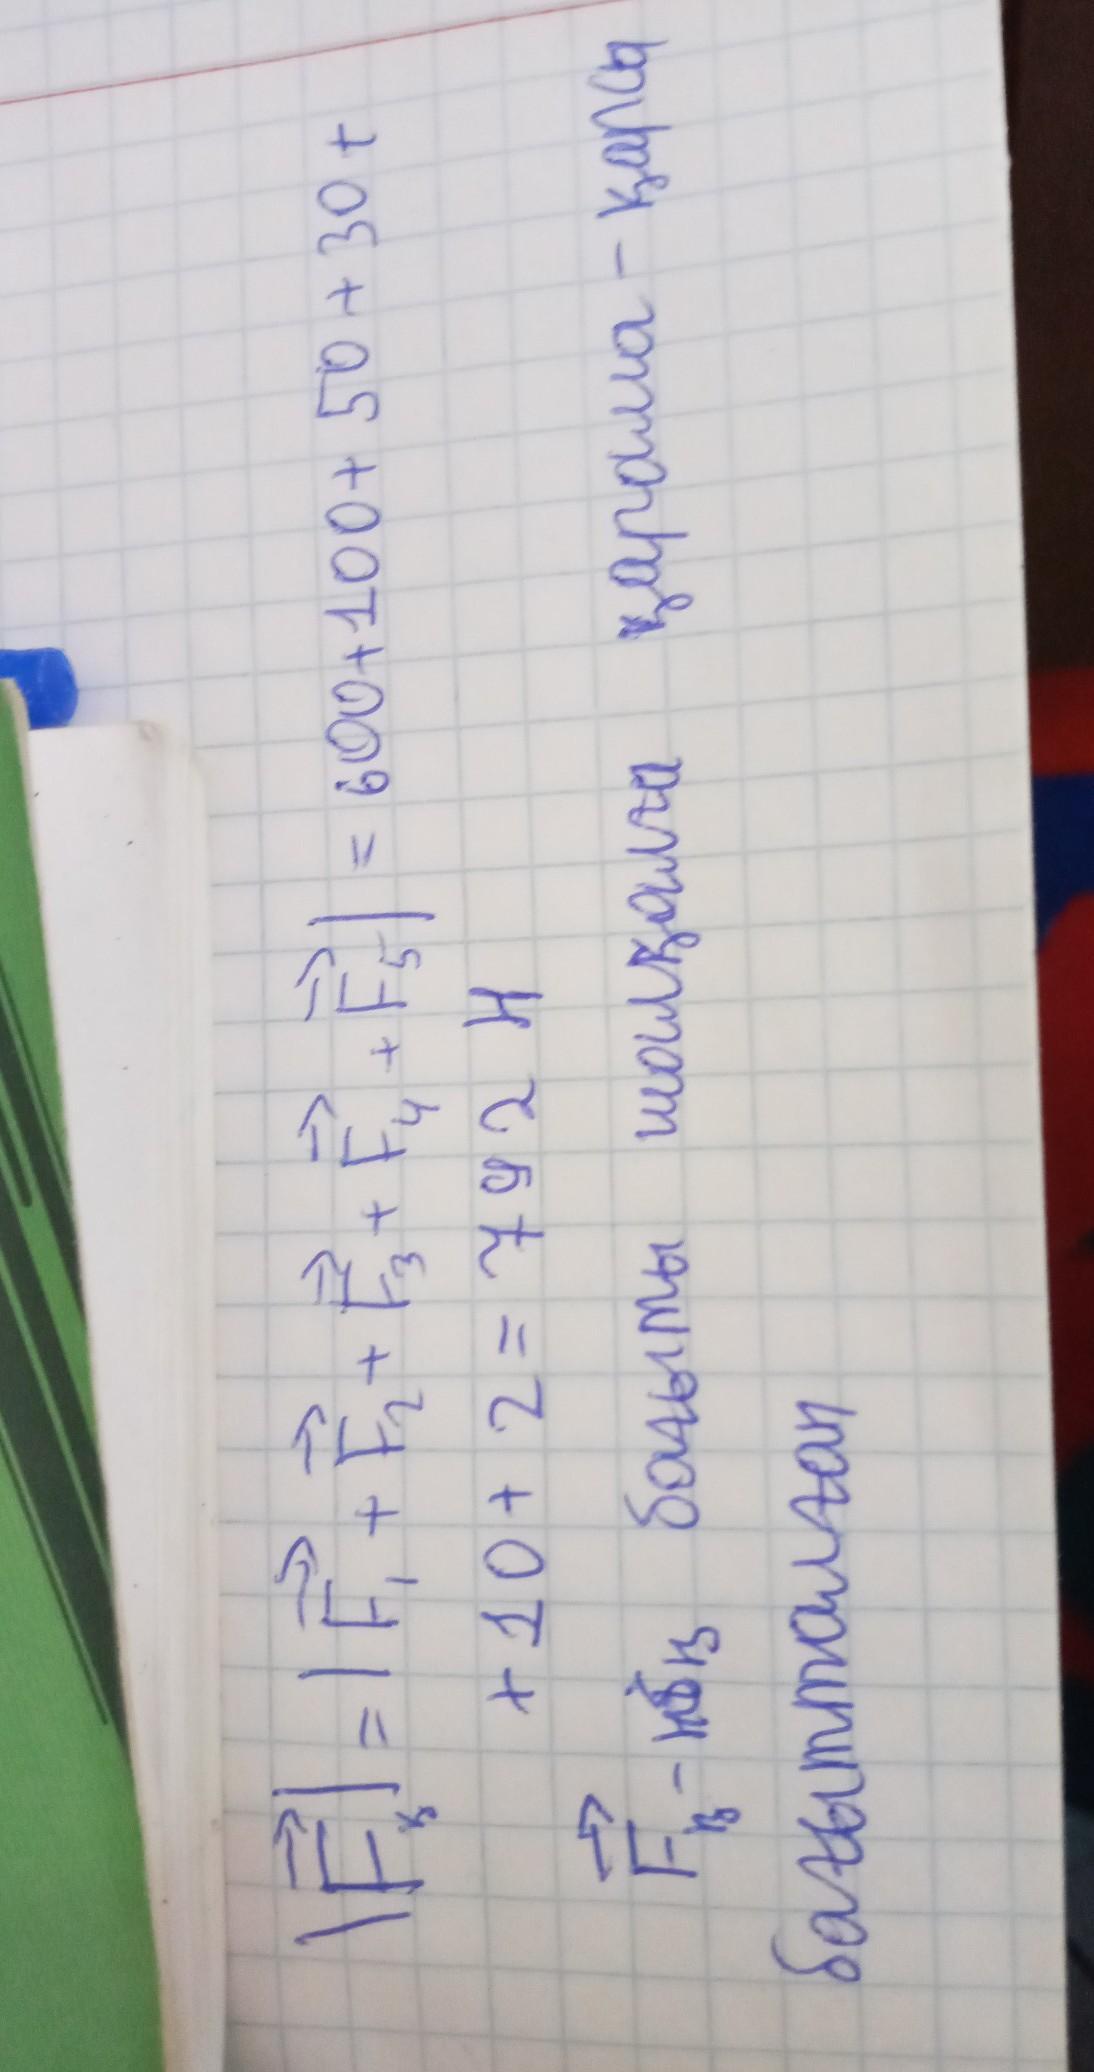 |F⃗қ| = |F⃗₁ + F⃗₂ + F⃗₃ + F⃗₄ + F⃗₅| = 600+100+50+30+
+10+2=792 Н
F⃗қ-ның бағыты шалқаға қарама-қарсы
бағытталған